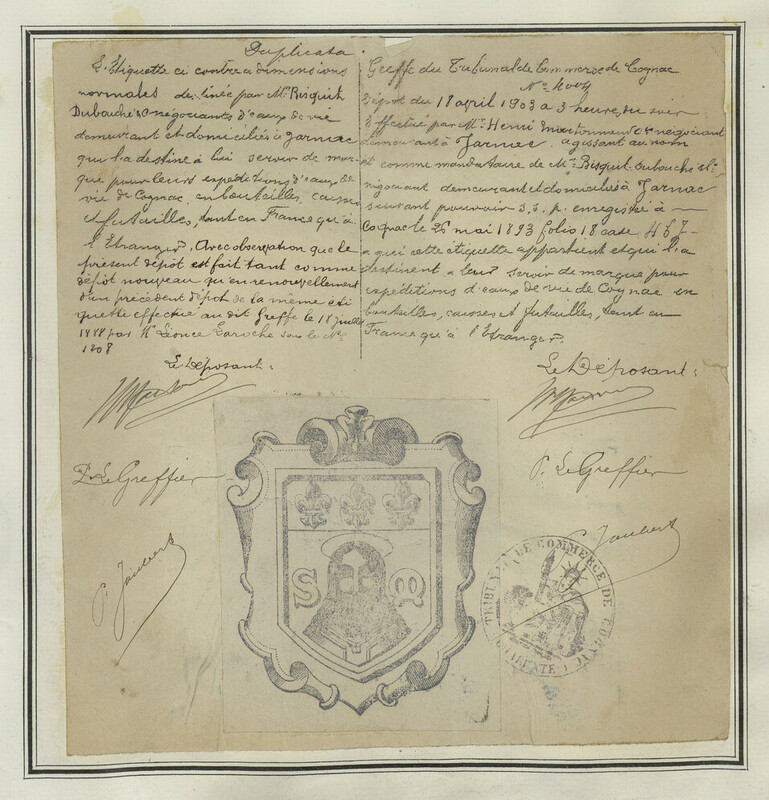 Duplicata
L'Etiquette ci contre a dimensions
normales destinée par Mrs Bisquit
Dubouché & négociants d'eaux de vie
demeurant et domiciliés à Jarnac
qui la destine à lui servir de mar-
que pour leurs expéditions d'eaux de
vie de Cognac, en bouteilles, caisses
et futailles, tant en France qu'à
l'Etranger. Avec observation que le
présent dépôt est fait tant comme
dépôt nouveau qu'en renouvellement
d'un précédent dépôt de la même éti
quette effectué au dit Greffe le 18 juillet
1888 par Mr Léonce Laroche sous le No
1208
Le Déposant:
Pr Le Greffier
P. Joubert
Greffe du Tribunal de Commerce de Cognac
No
Dépôt du 18 april 1903 a 3 heures du soir
Effectué par Mr Henri négociant
demeurant à Jarnac agissant au nom
et comme mandataire de Mrs Bisquit Dubouché et
négociant demeurant et domiciliés à Jarnac
suivant pouvoir s.s.p. enregistré à
Cognac le 26 mai 1893 folio 18 case 467
a qui cette étiquette appartient et qui la
destinent a leur servir de marque pour
expéditions d'eaux de vie de Cognac en
bouteilles, caisses et futailles, tant en
France qu'à l'Etranger.
Le Déposant:
P. Le Greffier
P. Joubert
S M
TRIBUNAL DE COMMERCE DE COGNAC
CHARENTE